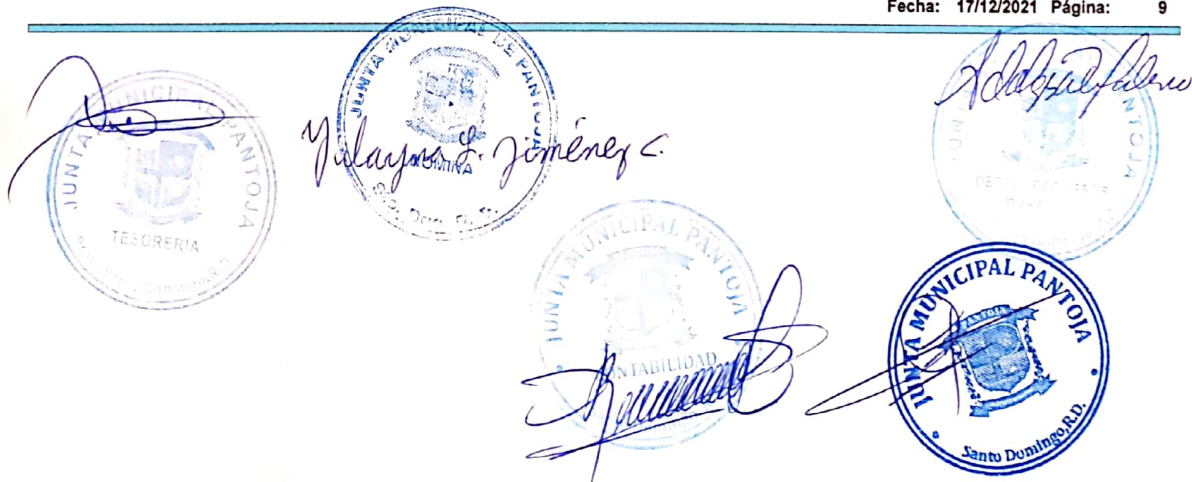 Fecha: 17/12/2021 Página: 9
JUNTA MUNICIPAL PANTOJA
TESORERIA
JUNTA MUNICIPAL DE PANTOJA
NOMINA
Yulayna L. Jiménez C.
JUNTA MUNICIPAL PANTOJA
CONTABILIDAD
JUNTA MUNICIPAL PANTOJA
PANTOJA
Santo Domingo, R.D.